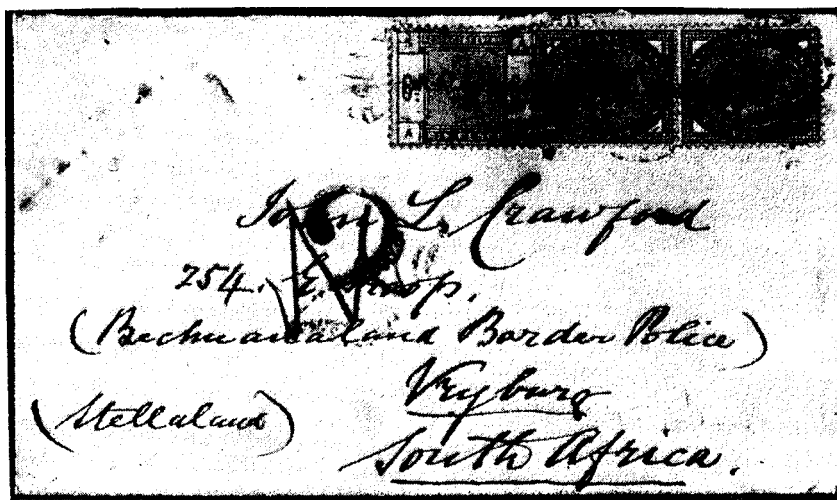 John L. Crawford
254. E. Troop.
(Bechuanaland Border Police)
Vryburg
(Stellaland)
South Africa.